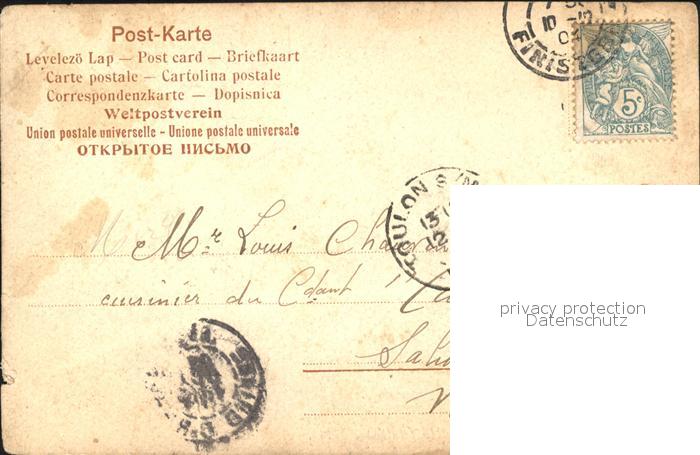 Post-Karte
Levelező Lap — Post card — Briefkaart
Carte postale — Cartolina postale
Correspondenzkarte — Dopisnica
Weltpostverein
Union postale universelle - Unione postale universale
ОТКРЫТОЕ ПИСЬМО
FINIS
5c
POSTES
TOULON S/M
Mr Louis
cuisinier du Cdant
privacy protection
Datenschutz